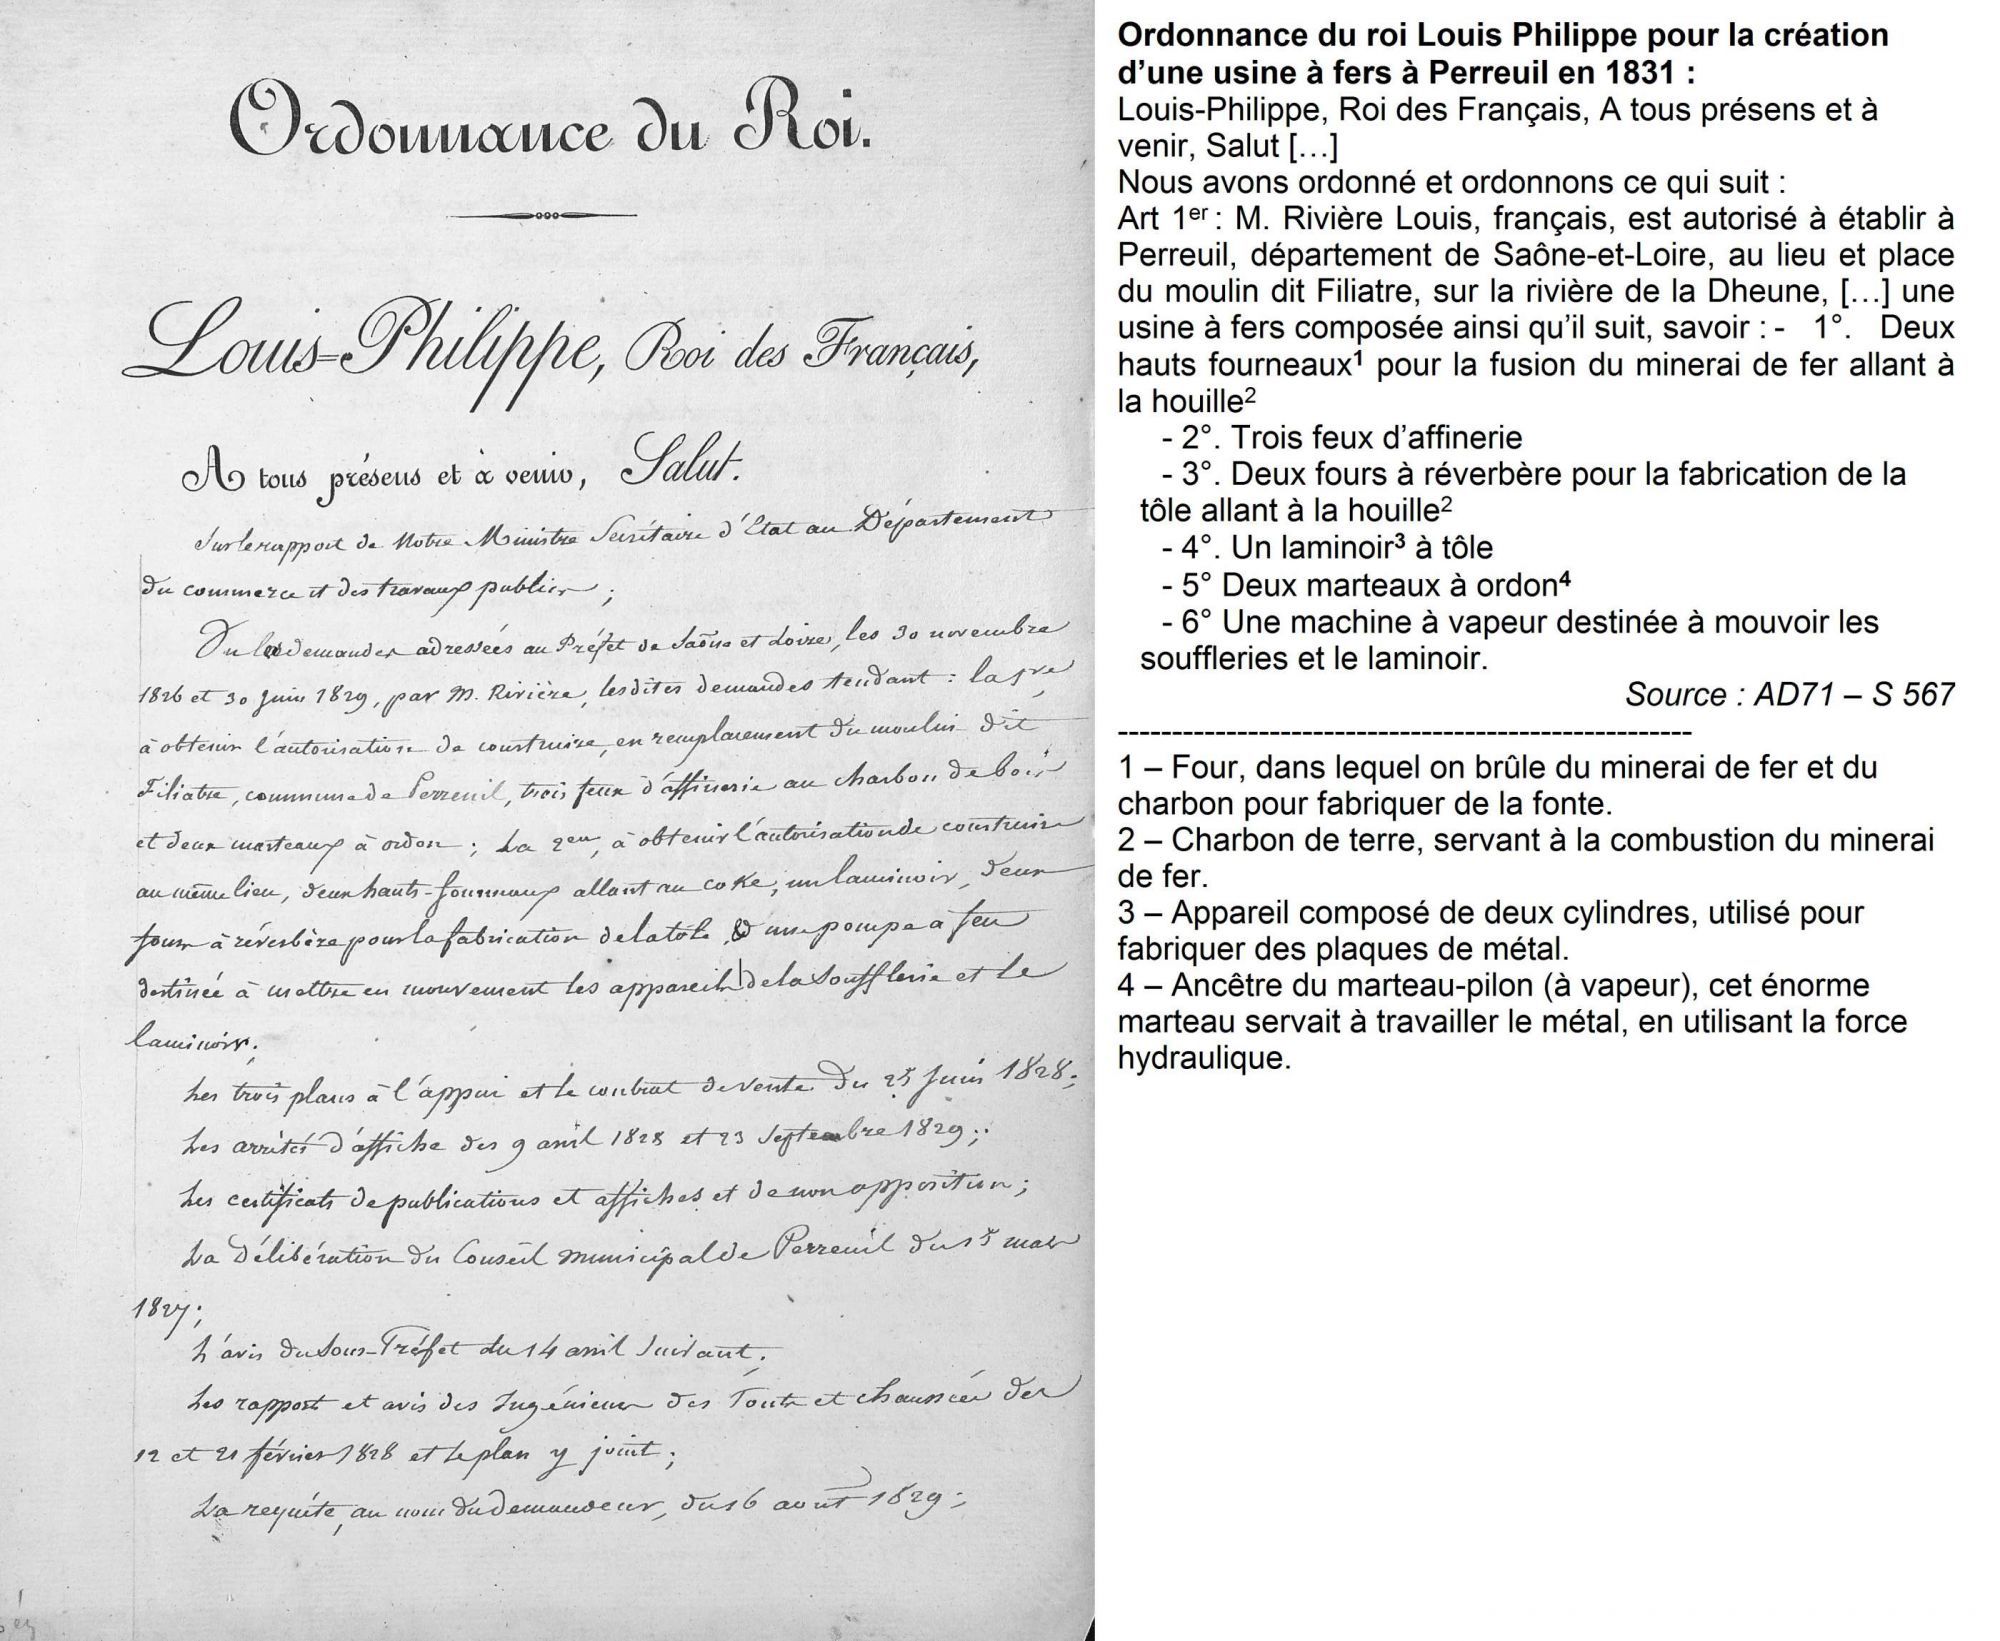 Ordonnance du Roi.
Louis-Philippe, Roi des Français,
A tous présens et à venir, Salut.
Sur le rapport de Notre Ministre Secrétaire d'Etat au Département
du commerce et des travaux publics ;
Vu les demandes adressées au Préfet de Saône et Loire, les 30 novembre
1826 et 30 Juin 1829, par M. Rivière, lesdites demandes tendant : la 1re
à obtenir l'autorisation de construire, en remplacement du moulin dit
Filiatre, commune de Perreuil, trois feux d'affinerie au charbon de bois
et deux marteaux à ordon ; La 2eme, à obtenir l'autorisation de construire
au même lieu, deux hauts-fourneaux allant au coke, un laminoir, deux
fours à réverbère pour la fabrication de la tôle, & une pompe à feu
destinée à mettre en mouvement les appareils de la soufflerie et le
laminoir ;
Les trois plans à l'appui et le contrat de vente du 25 Juin 1828 ;
Les arrêtés d'affiche des 9 avril 1828 et 23 Septembre 1829 ;
Les certificats de publications et affiches et de non opposition ;
La Délibération du Conseil municipal de Perreuil du 15 mars
1827 ;
L'avis du Sous-Préfet du 14 avril suivant ;
Les rapport et avis des Ingénieurs des Ponts et chaussées des
12 et 21 février 1828 et le plan y joint ;
La requête, au nom du demandeur, du 16 août 1829 ;
Ordonnance du roi Louis Philippe pour la création
d'une usine à fers à Perreuil en 1831 :
Louis-Philippe, Roi des Français, A tous présens et à
venir, Salut […]
Nous avons ordonné et ordonnons ce qui suit :
Art 1er : M. Rivière Louis, français, est autorisé à établir à
Perreuil, département de Saône-et-Loire, au lieu et place
du moulin dit Filiatre, sur la rivière de la Dheune, […] une
usine à fers composée ainsi qu'il suit, savoir : - 1°. Deux
hauts fourneaux1 pour la fusion du minerai de fer allant à
la houille2
- 2°. Trois feux d'affinerie
- 3°. Deux fours à réverbère pour la fabrication de la
tôle allant à la houille2
- 4°. Un laminoir3 à tôle
- 5° Deux marteaux à ordon4
- 6° Une machine à vapeur destinée à mouvoir les
souffleries et le laminoir.
Source : AD71 – S 567
----------------------------------------------------
1 – Four, dans lequel on brûle du minerai de fer et du
charbon pour fabriquer de la fonte.
2 – Charbon de terre, servant à la combustion du minerai
de fer.
3 – Appareil composé de deux cylindres, utilisé pour
fabriquer des plaques de métal.
4 – Ancêtre du marteau-pilon (à vapeur), cet énorme
marteau servait à travailler le métal, en utilisant la force
hydraulique.